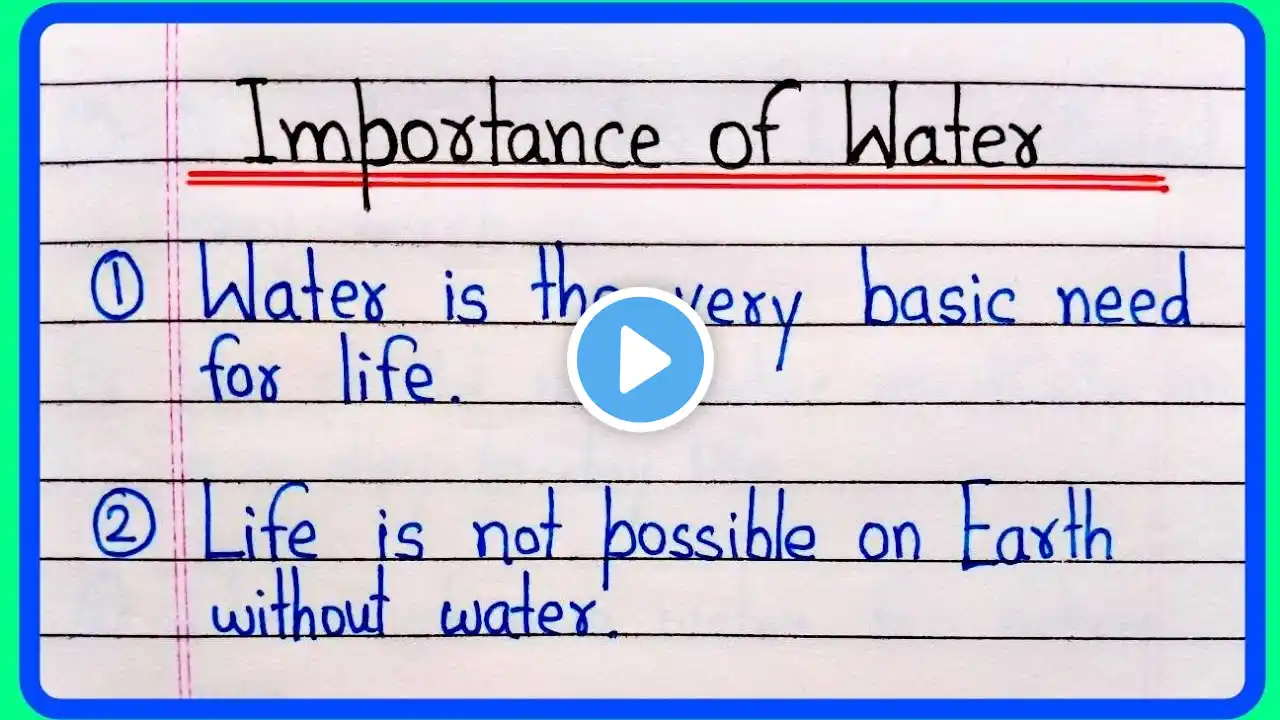 Importance of Water
① Water is the very basic need
for life.
② Life is not possible on Earth
without water.